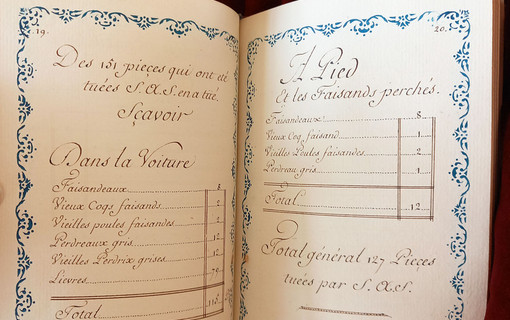 19.
Des 151 pieçes qui ont eté
tuées S.A.S. en a tué.
Sçavoir
Dans la Voiture
Faisandeaux 8
Vieux Coqs faisands 2
Vieilles poules faisandes 2
Perdreaux gris 12
Vieilles Perdrix grises 12
Lievres 79
Total 115
20.
A Pied
Et les Faisands perchés.
Faisandeaux 8
Vieux Coq faisand 1
Vieilles Poules faisandes 2
Perdreau gris 1
Total 12
Total général 127 Pieçes
tuées par S.A.S.